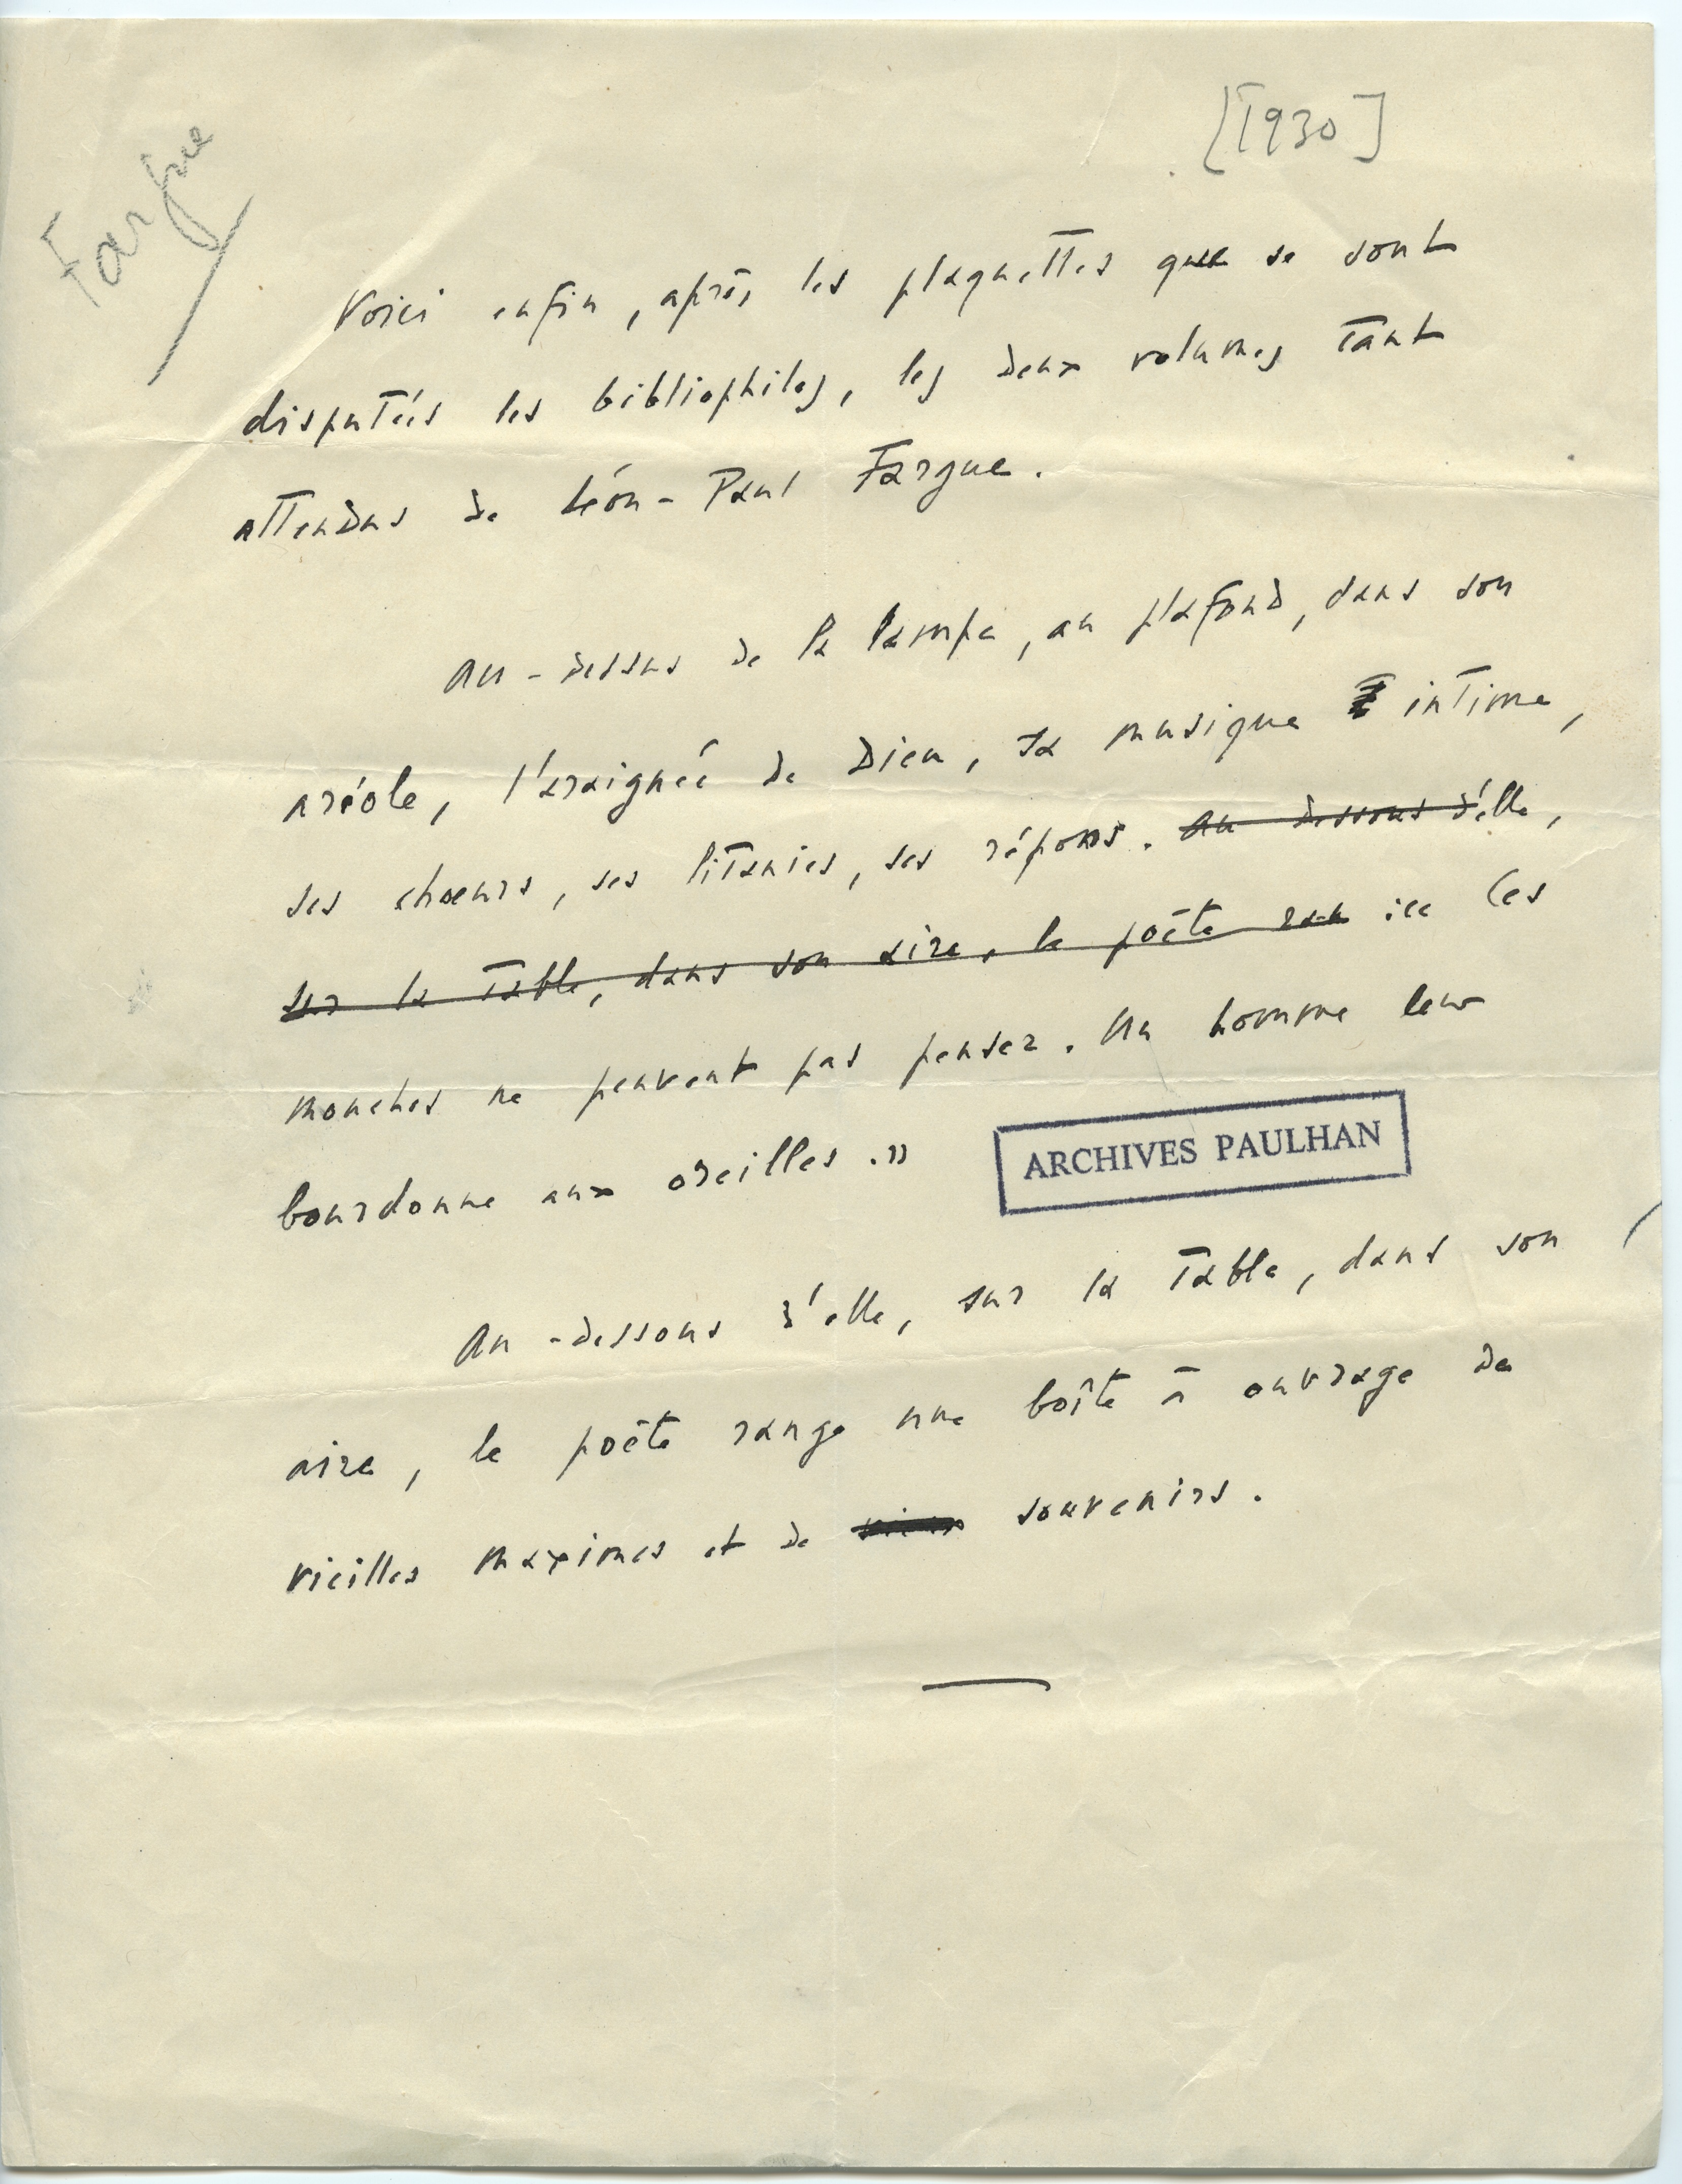 [1930]
Fargue
Voici enfin, après les plaquettes que se sont
disputées les bibliophiles, les deux volumes tant
attendus de Léon-Paul Fargue.
Au-dessus de la lampe, au plafond, dans son
aréole, l'araignée de Dieu, sa musique intime,
ses chœurs, ses litanies, ses répons. Au dessous d'elle,
sur la table, dans son aire, le poète ran «Les
mouches ne peuvent pas penser. Un homme leur
bourdonne aux oreilles.»
ARCHIVES PAULHAN
Au-dessous d'elle, sur la table, dans son
aire, le poète range une boîte à ouvrage de
vieilles maximes et de souvenirs.